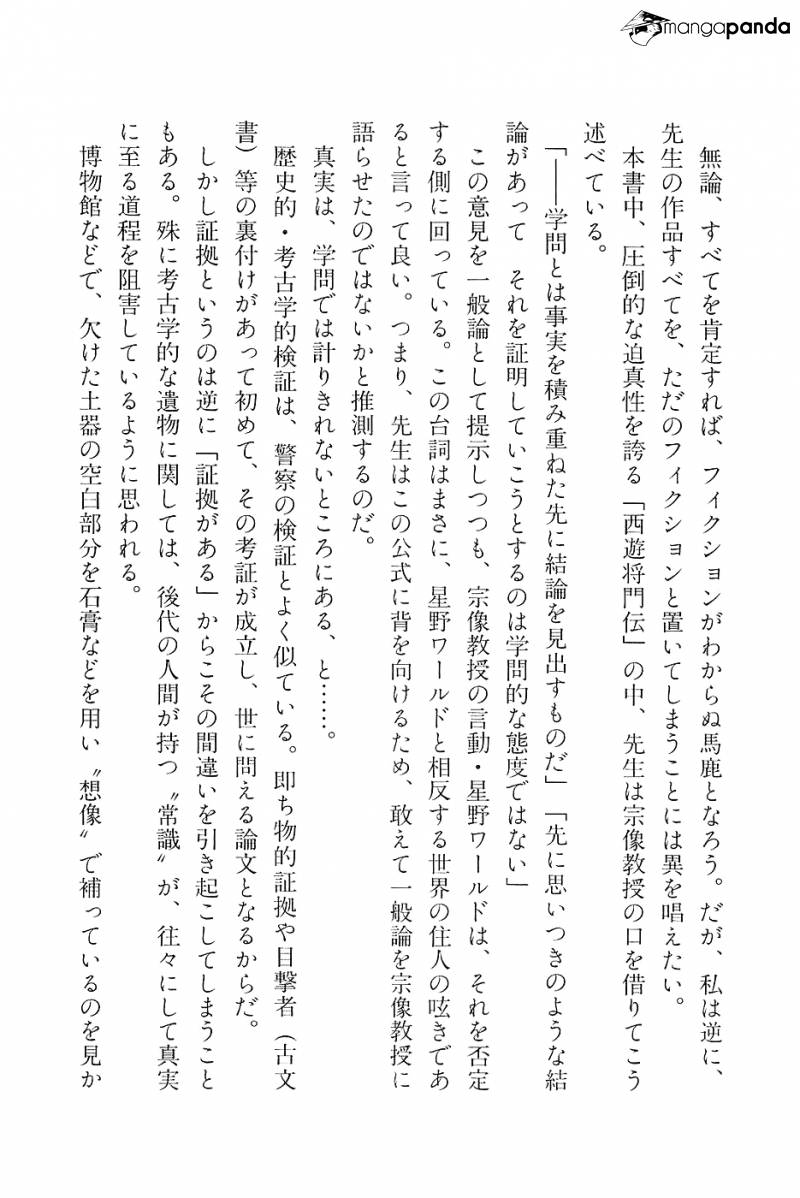 mangapanda
無論、すべてを肯定すれば、フィクションがわからぬ馬鹿となろう。だが、私は逆に、
先生の作品すべてを、ただのフィクションと置いてしまうことには異を唱えたい。
本書中、圧倒的な迫真性を誇る「西遊将門伝」の中、先生は宗像教授の口を借りてこう
述べている。
「――学問とは事実を積み重ねた先に結論を見出すものだ」「先に思いつきのような結
論があって　それを証明していこうとするのは学問的な態度ではない」
この意見を一般論として提示しつつも、宗像教授の言動・星野ワールドは、それを否定
する側に回っている。この台詞はまさに、星野ワールドと相反する世界の住人の呟きであ
ると言って良い。つまり、先生はこの公式に背を向けるため、敢えて一般論を宗像教授に
語らせたのではないかと推測するのだ。
真実は、学問では計りきれないところにある、と……。
歴史的・考古学的検証は、警察の検証とよく似ている。即ち物的証拠や目撃者（古文
書）等の裏付けがあって初めて、その考証が成立し、世に問える論文となるからだ。
しかし証拠というのは逆に「証拠がある」からこその間違いを引き起こしてしまうこと
もある。殊に考古学的な遺物に関しては、後代の人間が持つ〝常識〟が、往々にして真実
に至る道程を阻害しているように思われる。
博物館などで、欠けた土器の空白部分を石膏などを用い〝想像〟で補っているのを見か